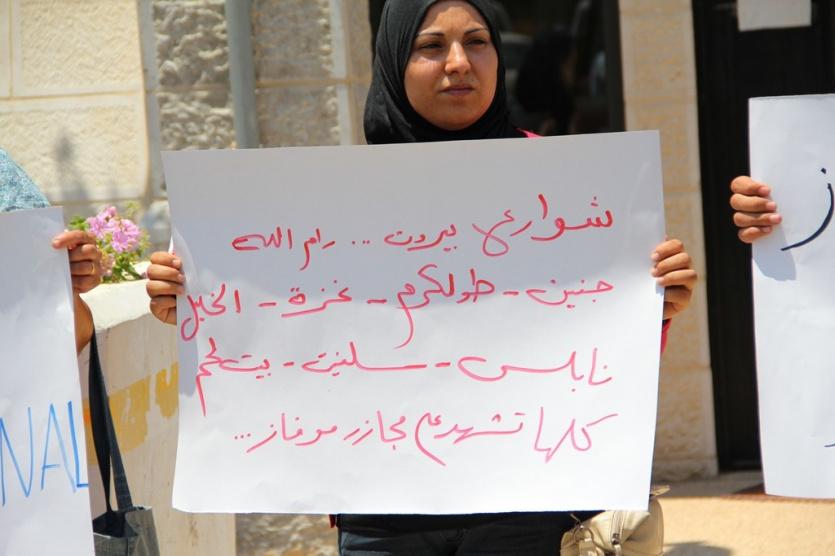 شوارع بيروت ... رام الله
جنين - طولكرم - غزة - الخليل
نابلس - سلفيت - بيت لحم
كلها تشهد ع مجازر موفاز ...
NAL
ز